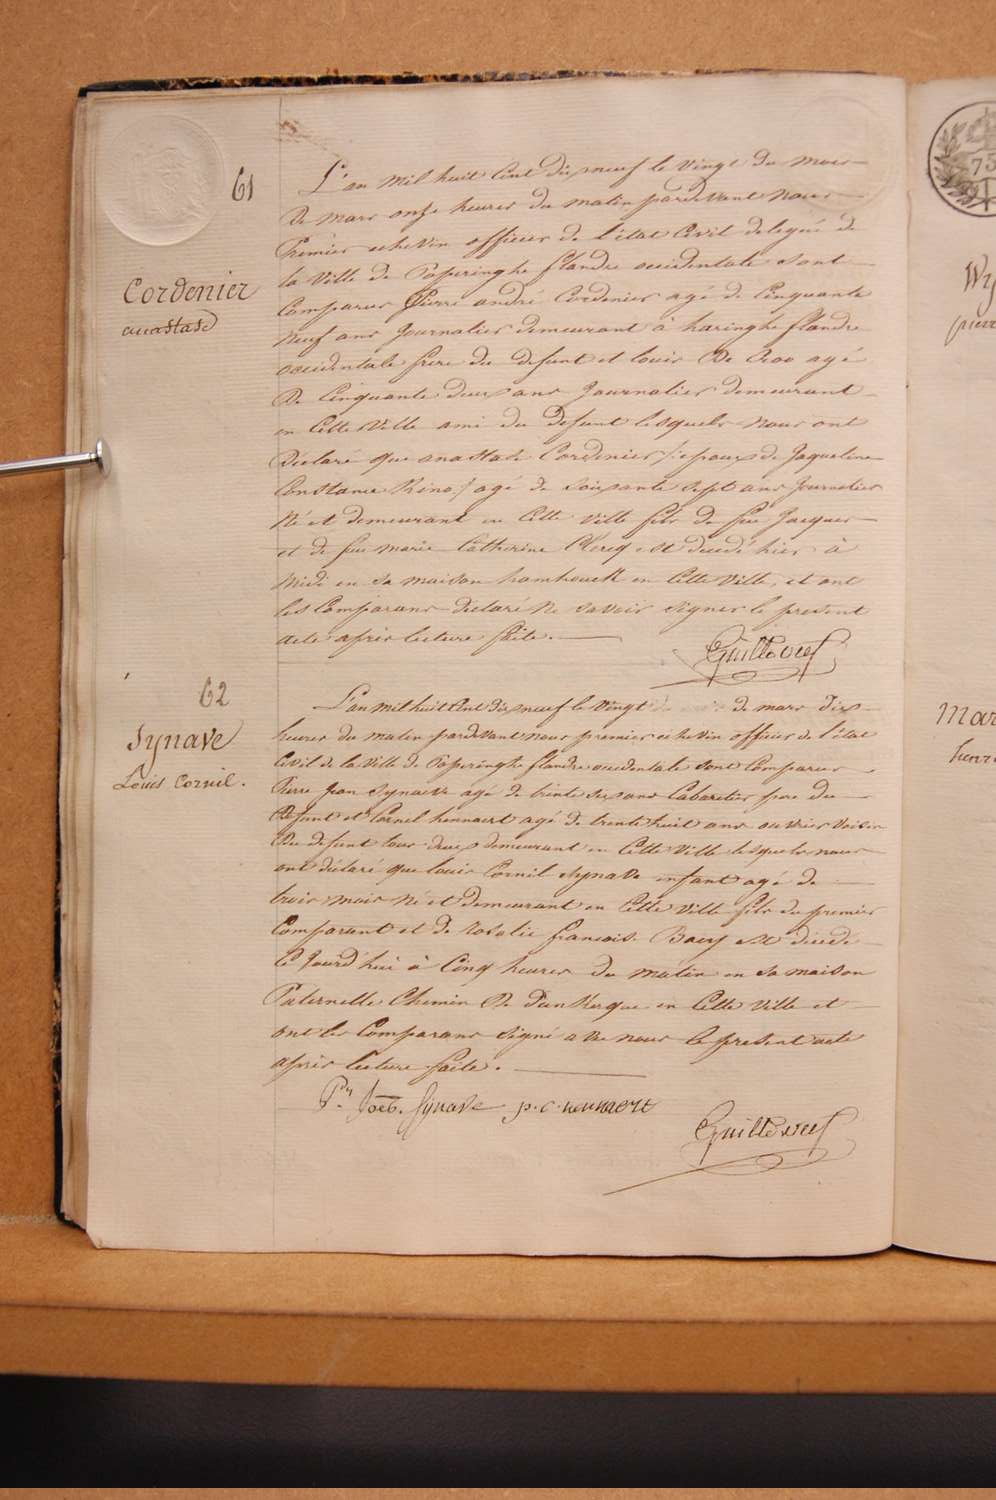 61
Cordenier
anastase
L'an mil huit Cent dix neuf le vingt du mois
de mars onze heures du matin pardevant nous
Premier echevin officier de l'état Civil delegué de
la ville de Poperinghe flandre occidentale sont
Comparus Pierre andré Cordenier agé de Cinquante
neuf ans Journalier demeurant à haringhe flandre
occidentale frere du defunt et louis De Croo agé
de Cinquante deux ans Journalier demeurant
en Cette ville ami du defunt lesquels nous ont
déclaré que anastase Cordenier /: epoux de Jaqueline
Constance Rino / agé de soixante sept ans Journalier
né et demeurant en Cette ville fils de feu Jacques
et de feu marie Catherine Clercq est decedé hier à
midi en sa maison hamhouck en Cette ville, et ont
les Comparans declaré ne savoir signer le present
acte après lecture faite.
62
Synave
Louis Cornil.
L'an mil huit Cent dix neuf le vingt de mars dix
heures du matin pardevant nous premier echevin officier de l'état
Civil de la ville de Poperinghe flandre occidentale sont Comparus
Pierre Jean Synave agé de trente six ans Cabaretier pere du
defunt et Cornil hennaert agé de trente huit ans ouvrier voisin
du defunt tous deux demeurant en Cette ville lesquels nous
ont déclaré que louis Cornil Synave enfant agé de
trois mois né et demeurant en Cette ville fils du premier
Comparant et de rosalie francoise Baey est décédé
Ce Jourd'hui à Cinq heures du matin en sa maison
Paternelle Chemin de Dunkerque en Cette ville et
ont les Comparans signé avec nous le present acte
après lecture faite.
Synave p. c. hennaert
Wy
pierre
Mar
henri
75